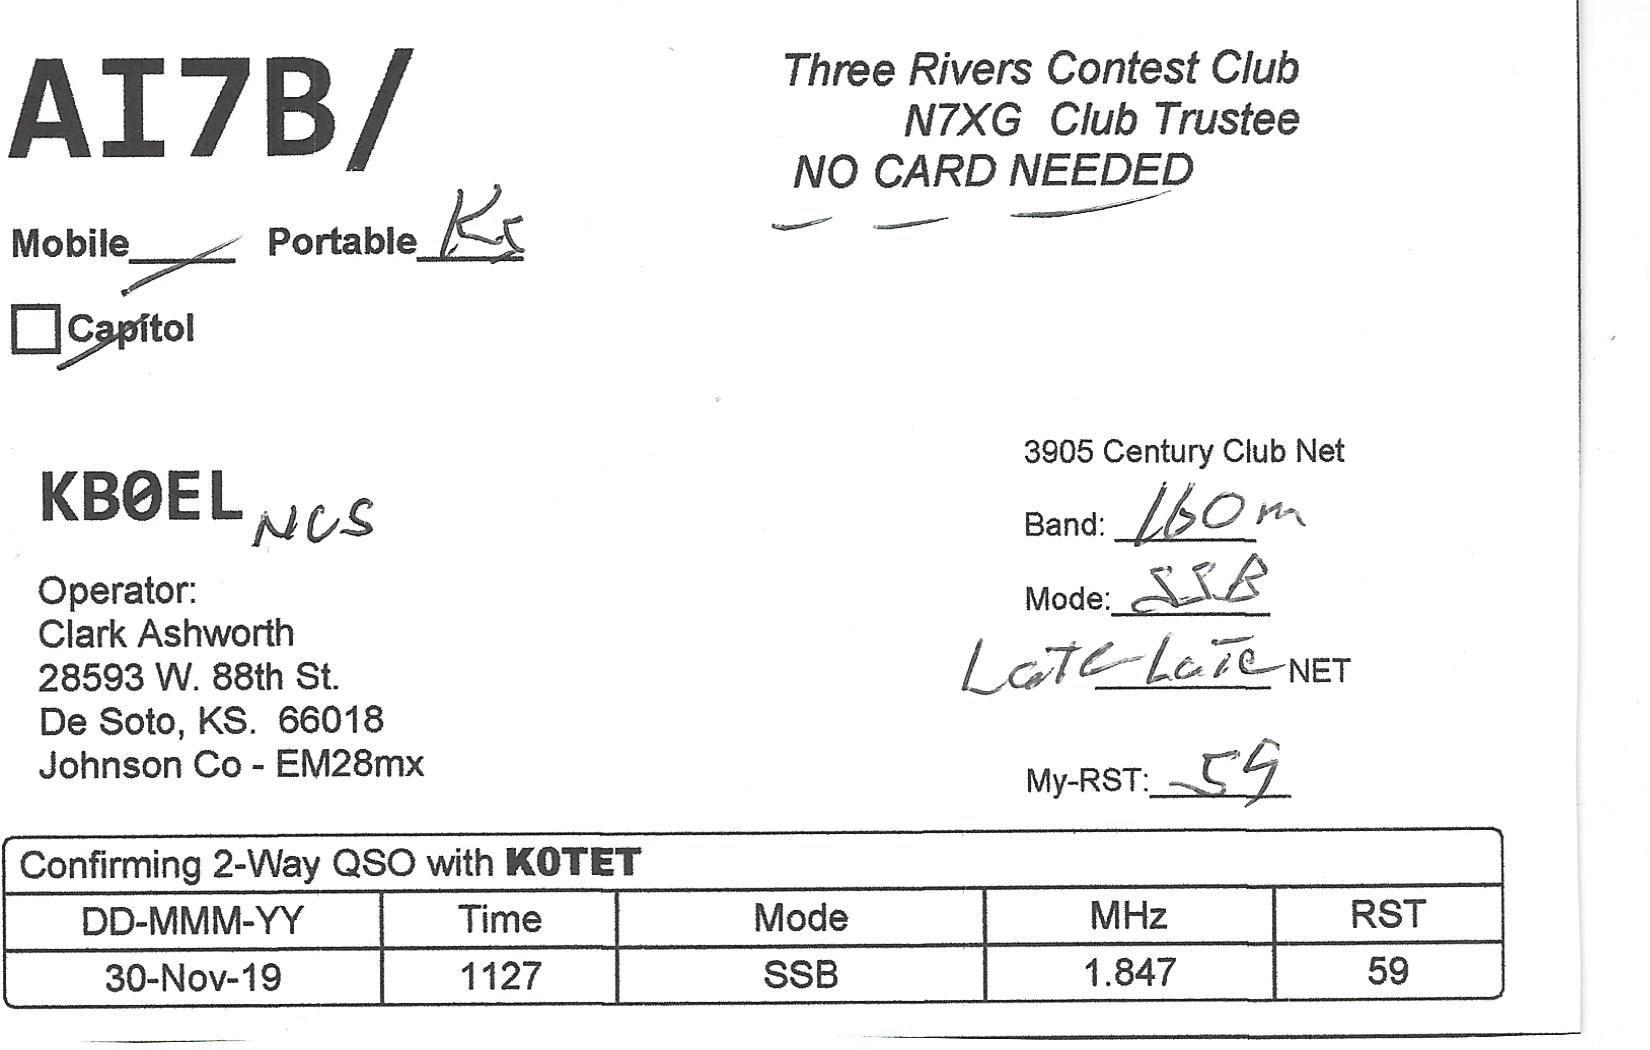 AI7B/
Three Rivers Contest Club
N7XG Club Trustee
NO CARD NEEDED
Mobile Portable Ks
Capitol
KBØEL NCS
Operator:
Clark Ashworth
28593 W. 88th St.
De Soto, KS. 66018
Johnson Co - EM28mx
3905 Century Club Net
Band: 160m
Mode: SSB
Late Late NET
My-RST: 59
Confirming 2-Way QSO with K0TET
DD-MMM-YY Time Mode MHz RST
30-Nov-19 1127 SSB 1.847 59